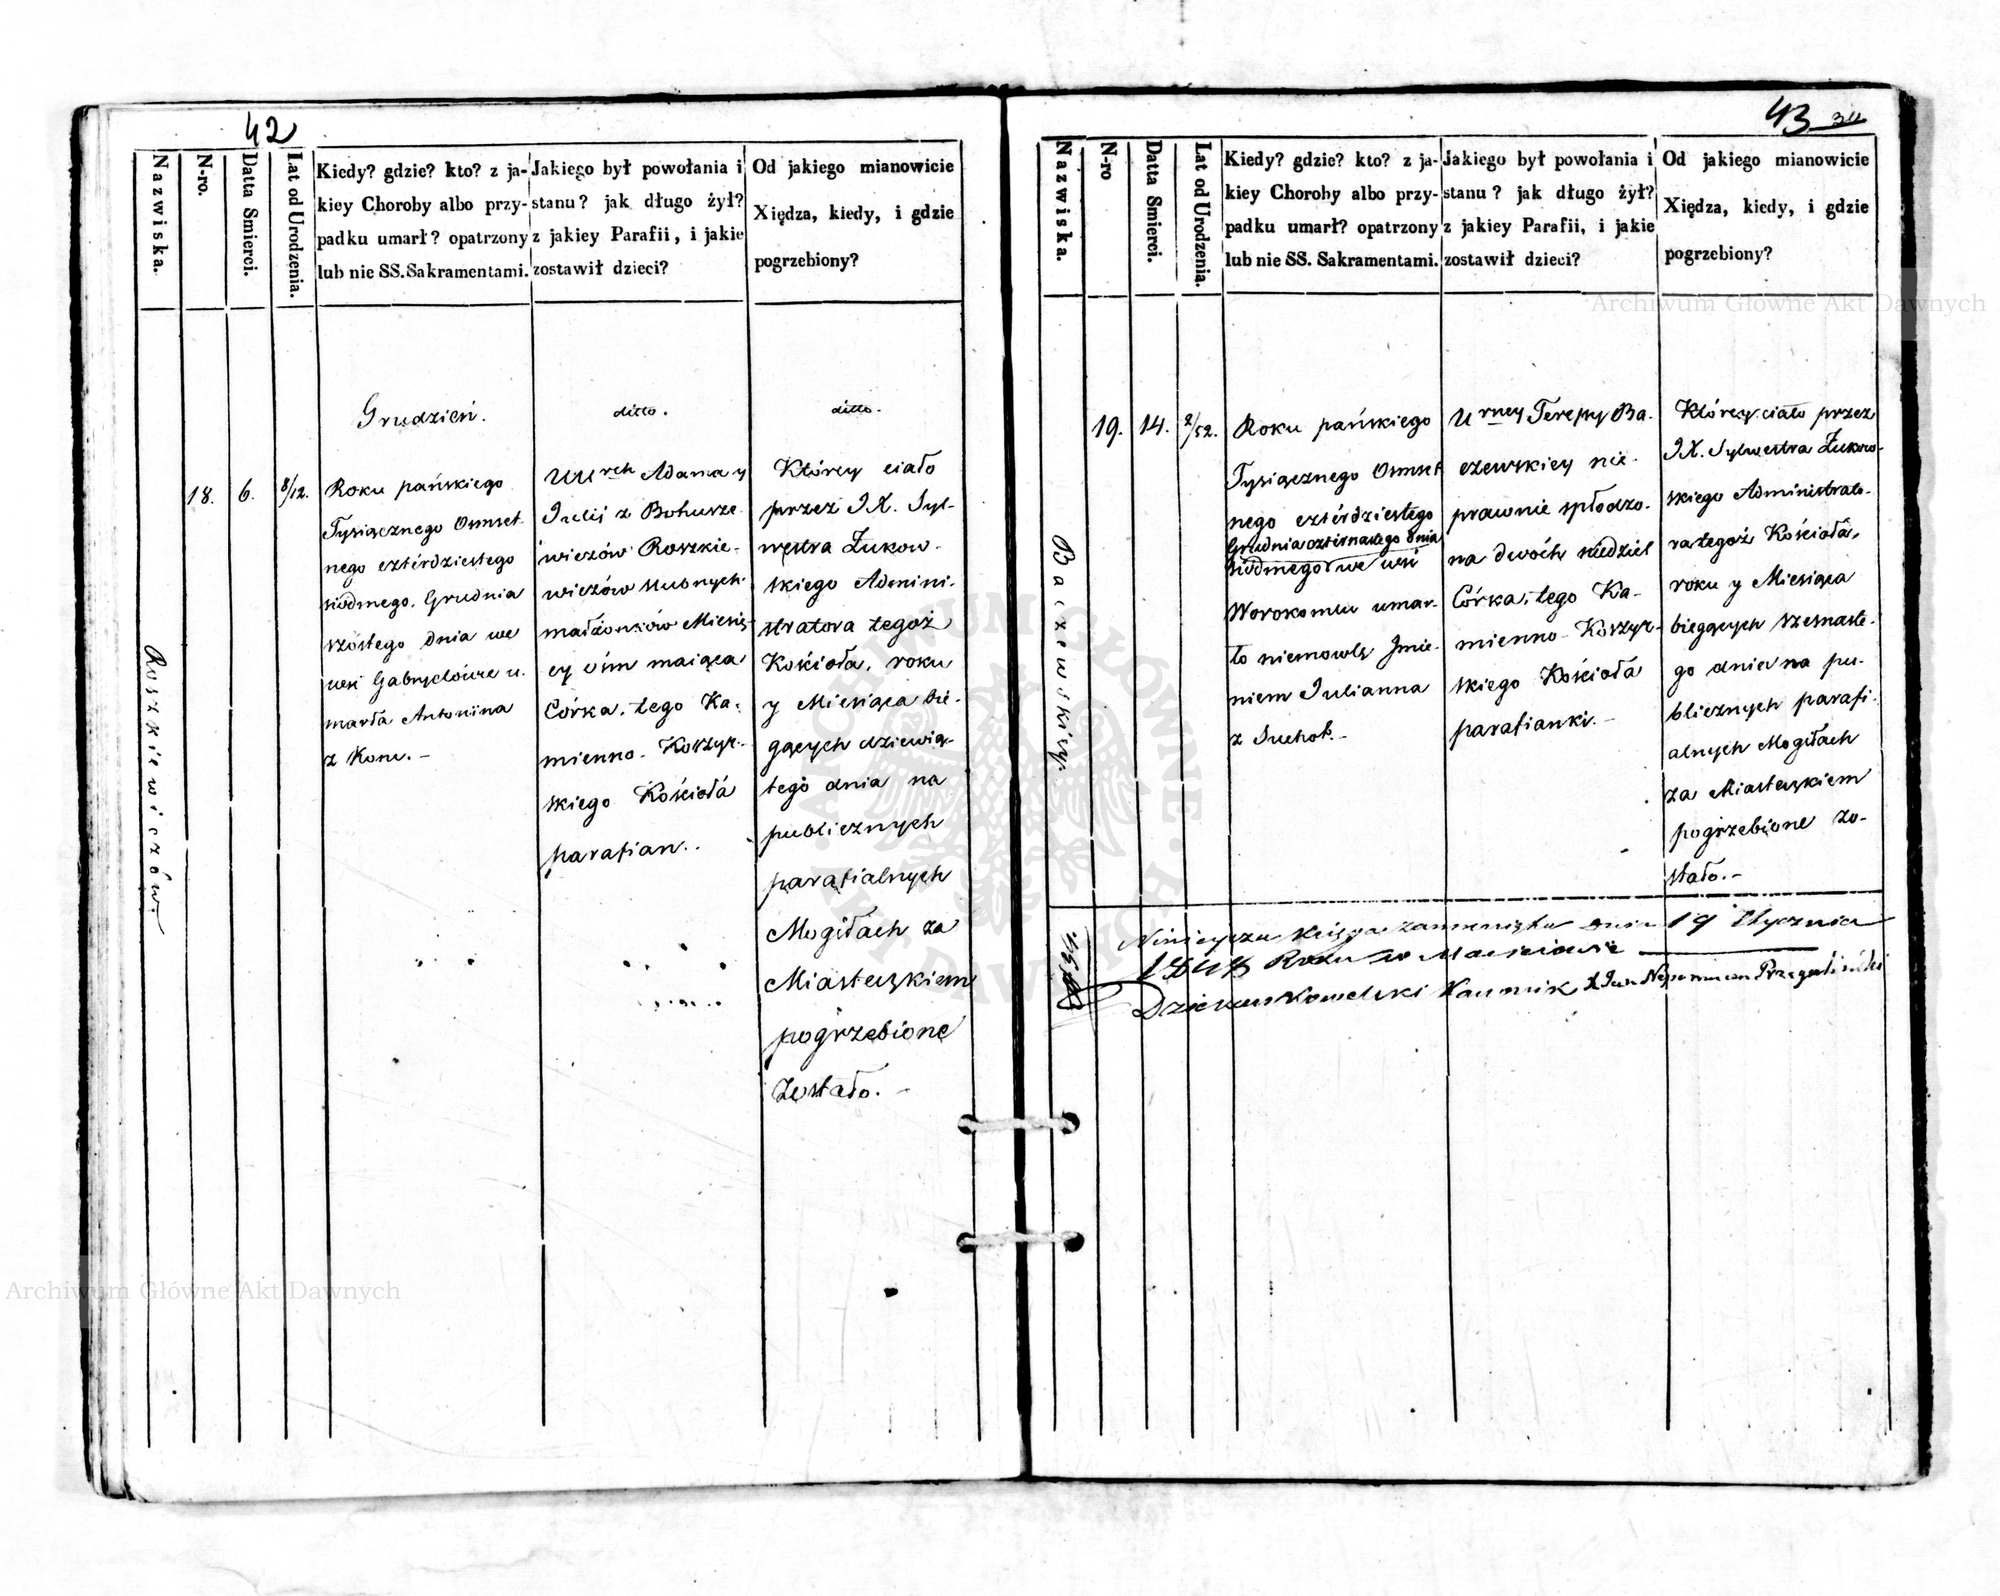 42
Nazwiska.
N-ro.
Datta Smierci.
Lat od Urodzenia.
Kiedy? gdzie? kto? z ja-
kiey Choroby albo przy-
padku umarł? opatrzony
lub nie SS. Sakramentami.
Jakiego był powołania i
stanu? jak długo żył?
z jakiey Parafii, i jakie
zostawił dzieci?
Od jakiego mianowicie
Xiędza, kiedy, i gdzie
pogrzebiony?
Roszkiewiczów.
18.
6.
8/12.
Grudzień.
Roku pańskiego
Tysiącznego Osmset
nego cztérdziestego
siódmego, Grudnia
szóstego dnia we
wsi Gabrylówce u.
marła Antonina
z Konw. –
ditto.
WW rch Adama y
Julij z Bohusze
wiczów Roszkie-
wiczów slubnych
małżonków Miesię
cy ośm maiąca
Córka, tego Ka-
mienno-Koszyr-
skiego Kościoła
parafian.
ditto.
Którey ciało
przez JX. Syl-
westra Żukow-
skiego Admini-
stratora tegoż
Kościoła, roku
y Miesiąca bie-
gących dziewią-
tego dnia na
publicznych
parafialnych
Mogiłach za
Miasteczkiem
pogrzebione
zostało. –
43
Nazwiska.
N-ro
Datta Smierci.
Lat od Urodzenia.
Kiedy? gdzie? kto? z ja-
kiey Choroby albo przy-
padku umarł? opatrzony
lub nie SS. Sakramentami.
Jakiego był powołania i
stanu? jak długo żył?
z jakiey Parafii, i jakie
zostawił dzieci?
Od jakiego mianowicie
Xiędza, kiedy, i gdzie
pogrzebiony?
Baczewskiey.
19.
14.
2/52.
Roku pańskiego
Tysiącznego Osmset
nego cztérdziestego
Grudnia czternastego dnia
siódmego we wsi
Worokomlu umar-
ło niemowlę Jmie-
niem Julianna
z Suchot. –
Urney Teressy Ba-
czewskiey nie-
prawnie spłodzo-
na dwóch niedziel
Córka, tego Ka-
mienno-Koszyr-
skiego Kościoła
parafianki. –
Którey ciało przez
JX. Sylwestra Żukow-
skiego Administrato-
ra tegoż Kościoła,
roku y Miesiąca
biegących szesnaste-
go dnia na pu-
blicznych parafi-
alnych Mogiłach
za Miasteczkiem
pogrzebione zo-
stało. –
Ninieysza księga zamknięta dnia 19 Stycznia
1848 Roku w Maciejowie
Dziekan Kowelski Kanonik X Jan Nepomucen Przegaliński
Archiwum Główne Akt Dawnych
ARCHIWUM GŁÓWNE AKT DAWNYCH
Archiwum Główne Akt Dawnych